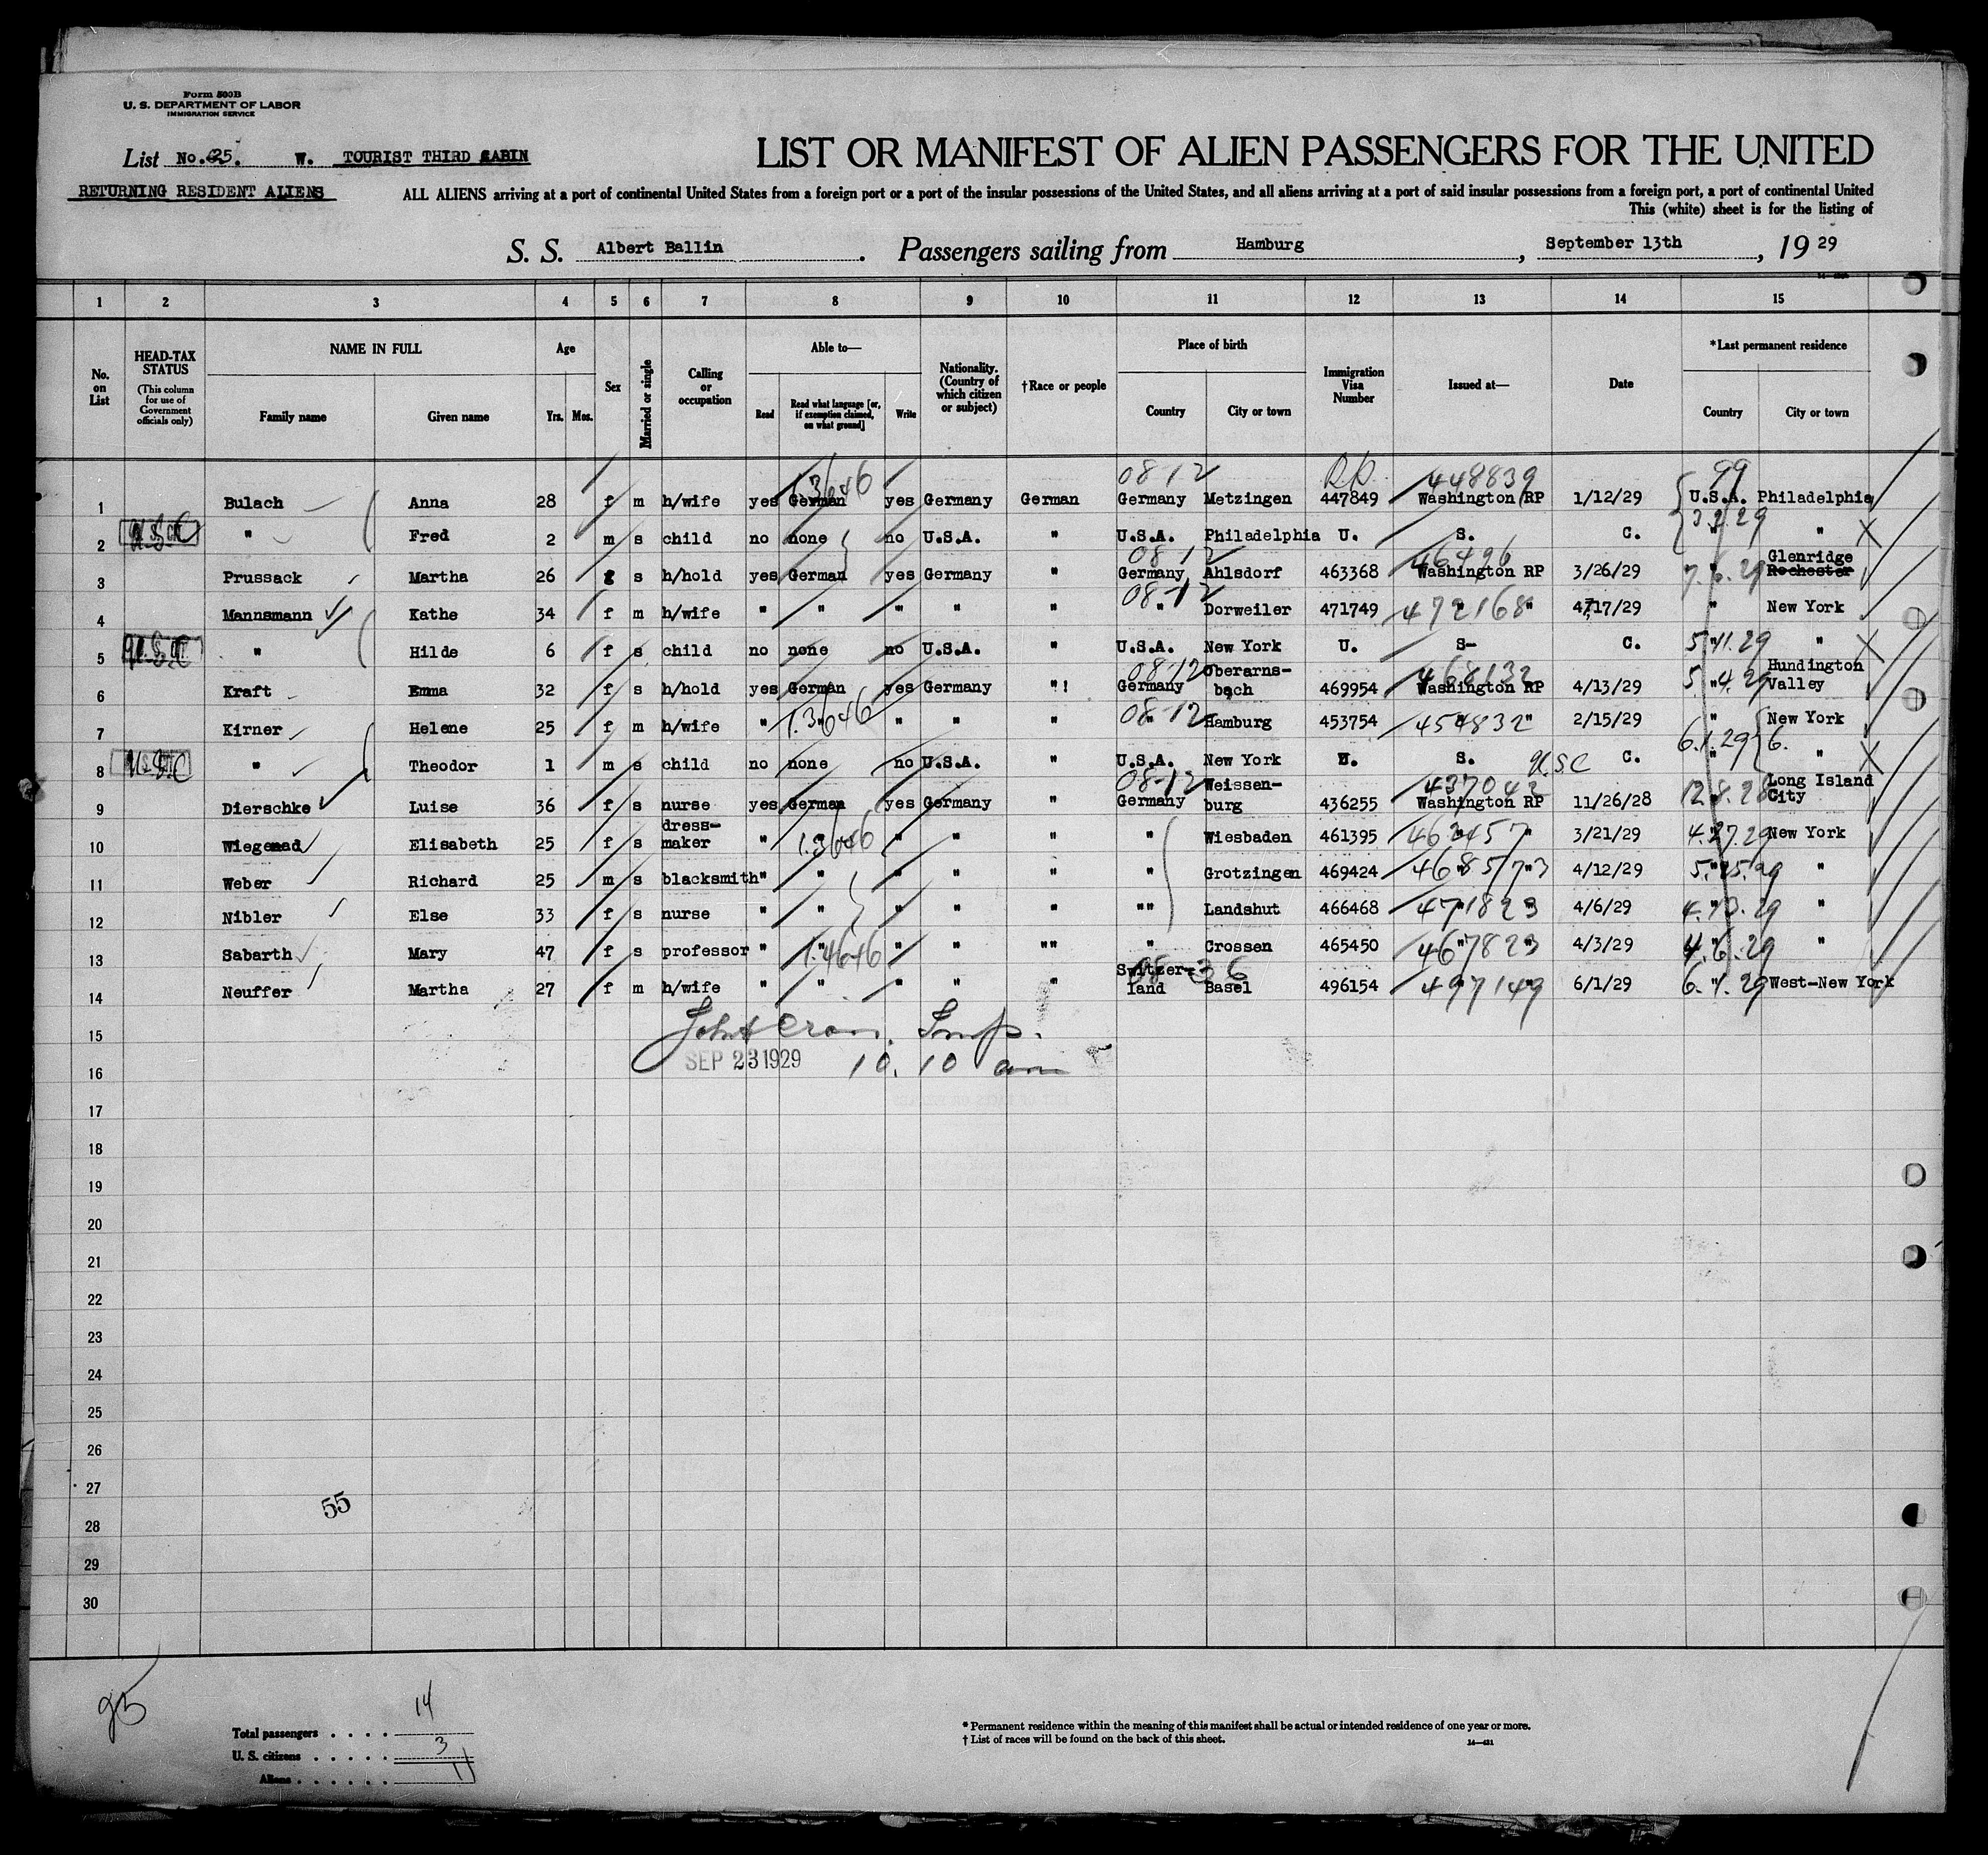 Form 500B
U. S. DEPARTMENT OF LABOR
IMMIGRATION SERVICE
List No. 25. W. TOURIST THIRD CABIN
RETURNING RESIDENT ALIENS
LIST OR MANIFEST OF ALIEN PASSENGERS FOR THE UNITED
ALL ALIENS arriving at a port of continental United States from a foreign port or a port of the insular possessions of the United States, and all aliens arriving at a port of said insular possessions from a foreign port, a port of continental United
This (white) sheet is for the listing of
S. S. Albert Ballin. Passengers sailing from Hamburg, September 13th, 1929
1 2 3 4 5 6 7 8 9 10 11 12 13 14 15
No. on List
HEAD-TAX STATUS (This column for use of Government officials only)
NAME IN FULL
Family name Given name
Age
Yrs. Mos.
Sex
Married or single
Calling or occupation
Able to—
Read
Read what language [or, if exemption claimed, on what ground]
Write
Nationality. (Country of which citizen or subject)
†Race or people
Place of birth
Country City or town
Immigration Visa Number
Issued at—
Date
*Last permanent residence
Country City or town
08-12 448839 99
1 Bulach Anna 28 f m h/wife yes German yes Germany German Germany Metzingen 447849 Washington RP 1/12/29 U.S.A. Philadelphia
2 U.S.C " Fred 2 m s child no none no U.S.A. " U.S.A. Philadelphia U. S. C. "
08-12
3 Prussack Martha 26 f s h/hold yes German yes Germany " Germany Ahlsdorf 463368 Washington RP 3/26/29 " Glenridge Rochester
08-12
4 Mannsmann Kathe 34 f m h/wife " " " " " " Dorweiler 471749 472168 " " 4/17/29 " New York
5 U.S.C " Hilde 6 f s child no none no U.S.A. " U.S.A. New York U. S- C. 5.11.29 "
08-12 468132
6 Kraft Emma 32 f s h/hold yes German yes Germany "! Germany Oberarns-bach 469954 Washington RP 4/13/29 5.4.29 " Hundington Valley
7 Kirner Helene 25 f m h/wife " " 1.3646 " " " 08-12 " Hamburg 453754 454832 " " 2/15/29 " New York
8 U.S.C " Theodor 1 m s child no none no U.S.A. " U.S.A. New York U. S. U.S.C C. 6.1.29 " "
08-12 437042
9 Dierschke Luise 36 f s nurse yes German yes Germany " Germany Weissen-burg 436255 Washington RP 11/26/28 12.8.28 " Long Island City
10 Wiegand Elisabeth 25 f s dress-maker " 1.3646 " " " " Wiesbaden 461395 462457 " " 3/21/29 4.27.29 New York
11 Weber Richard 25 m s blacksmith " " " " " " Grotzingen 469424 468573 " " 4/12/29 " "
12 Nibler Else 33 f s nurse " " " " " "" Landshut 466468 471823 " " 4/6/29 " "
13 Sabarth Mary 47 f s professor " " 1.4646 " " "" " Crossen 465450 467823 " " 4/3/29 4.6.29 " "
14 Neuffer Martha 27 f m h/wife " " " " " Switzer-land Basel 496154 497149 " " 6/1/29 " West-New York
15 Insp.
16 SEP 23 1929 10.10 am
17
18
19
20
21
22
23
24
25
26
27
55
28
29
30
95
Total passengers . . . . 14
U. S. citizens . . . . . 3
Aliens . . . . . . 11
* Permanent residence within the meaning of this manifest shall be actual or intended residence of one year or more.
† List of races will be found on the back of this sheet.
14—421